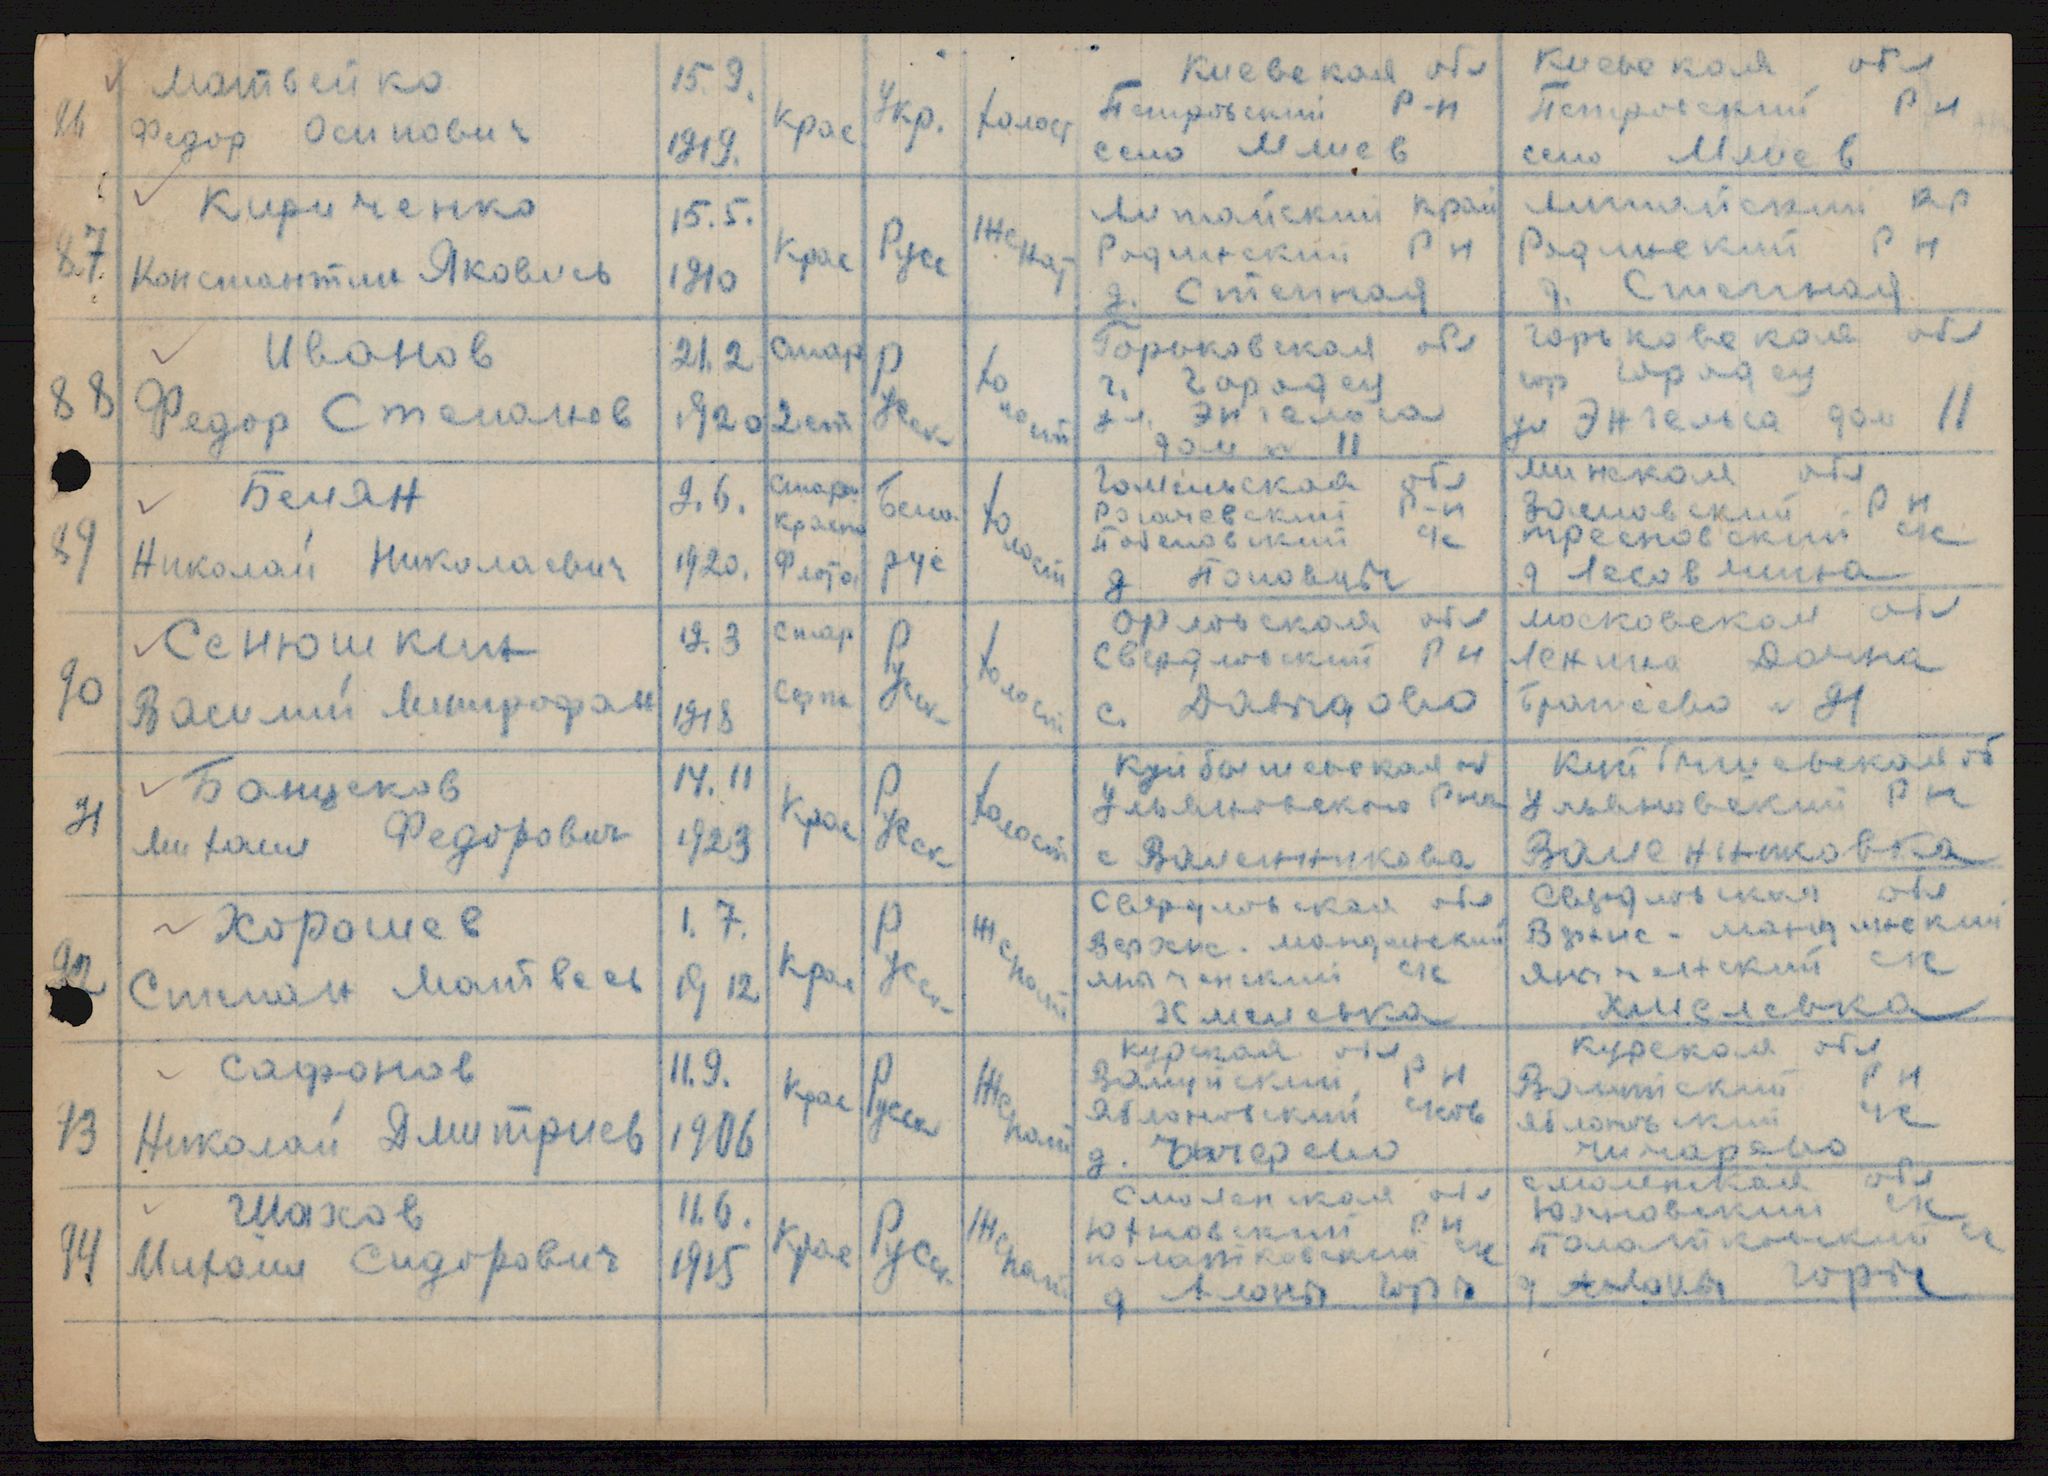 86 Матвейко 15.9. Крас Укр. холост Киевская обл Киевская обл
Федор Осипович 1919. Петровский Р-н Петровский Р н
село Млиев село Млиев
87. Кириченко 15.5. Крас Русс Женат Алтайский край Алтайский кр
Константин Яковлевь 1910 Родинский Р н Родинский Р н
д. Степная д. Степная
88 Иванов 21.2 Стар Русск холост Горьковская обл Горьковская обл
Федор Степанов 1920 2 ст г. Городец гор Городец
ул. Энгельса ул Энгельса дом 11
дом № 11
89 Белян 9.6. Старш Бело холост Гомельская обл Минская обл
Красно Рогачевский Р-н Заславский Р н
Николай Николаевич 1920. Флота рус ск ск
д Поповцы д Лесовщина
90 Сенюшкин 19.3 Стар Русск холост Орловская обл Московская обл
Свердловский Р н Ленина Дачна
Василий Митрофан 1918 Серж с. Давыдово № 91
91 Банщеков 14.11 Крас Русск холост Куйбышевская об Куйбышевская об
Ульяновского Рна Ульяновский Р н
Михаил Федорович 1923 с Валенникова Валенниковка
92 Хорошев 1.7. Крас Русск Женат Свердловская обл Свердловская обл
ск ск
Степан Матвеев 1912 Хмелевка Хмелевка
93 Сафонов 11.9. Крас Русск Женат Курская обл Курская обл
Валуйский Р н Валуйский Р н
Николай Дмитриев 1906 Яблоновский сков Яблоновский ск
д. Чичерево Чичарево
94 Шахов 11.6. Крас Русск Женат Смоленская обл Смоленская обл
Михаил Сидорович 1915 Юхновский Р н Юхновский ск
Палатковский ск Палатковский ск
д Горы д Горы